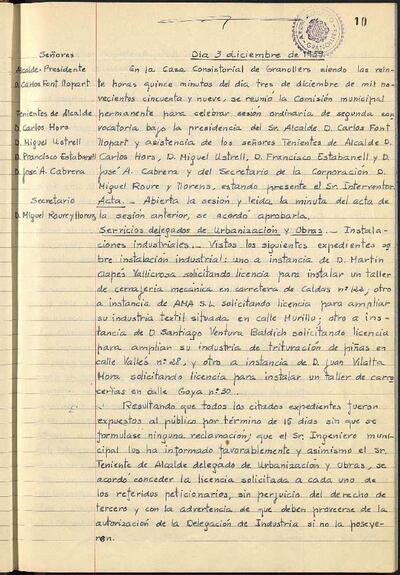 10
Día 3 diciembre de 1959
Señores
Alcalde-Presidente
D. Carlos Font Llopart
Tenientes de Alcalde
D. Carlos Hors
D. Miguel Ustrell
D. Francisco Estabanell
D. José A. Cabrera
Secretario
D. Miguel Roure y Llorens
En la Casa Consistorial de Granollers siendo las vein-
te horas quince minutos del día tres de diciembre de mil no-
vecientos cincuenta y nueve, se reunió la Comisión municipal
permanente para celebrar sesión ordinaria de segunda con-
vocatoria bajo la presidencia del Sr. Alcalde D. Carlos Font
Llopart y asistencia de los señores Tenientes de Alcalde D.
Carlos Hors, D. Miguel Ustrell, D. Francisco Estabanell y D.
José A. Cabrera y del Secretario de la Corporación D.
Miguel Roure y Llorens, estando presente el Sr. Interventor.
Acta. - Abierta la sesión y leída la minuta del acta de
la sesión anterior, se acordó aprobarla.
Servicios delegados de Urbanización y Obras. - Instala-
ciones industriales. - Vistos los siguientes expedientes so-
bre instalación industrial: uno a instancia de D. Martín
Clapés Vallicrosa solicitando licencia para instalar un taller
de cerrajería mecánica en carretera de Caldas nº 122; otro
a instancia de AMA S.L. solicitando licencia para ampliar
su industria textil situada en calle Murillo; otro a ins-
tancia de D. Santiago Ventura Baldich solicitando licencia
para ampliar su industria de trituración de piñas en
calle Vallés nº 28, y otro a instancia de D. Juan Vilalta
Mora solicitando licencia para instalar un taller de carro-
cerías en calle Goya nº 30.
Resultando que todos los citados expedientes fueron
expuestos al público por término de 15 días sin que se
formulase ninguna reclamación; que el Sr. Ingeniero muni-
cipal los ha informado favorablemente y asimismo el Sr.
Teniente de Alcalde delegado de Urbanización y Obras, se
acordó conceder la licencia solicitada a cada uno de
los referidos peticionarios, sin perjuicio del derecho de
tercero y con la advertencia de que deben proveerse de la
autorización de la Delegación de Industria si no la poseye-
ren.